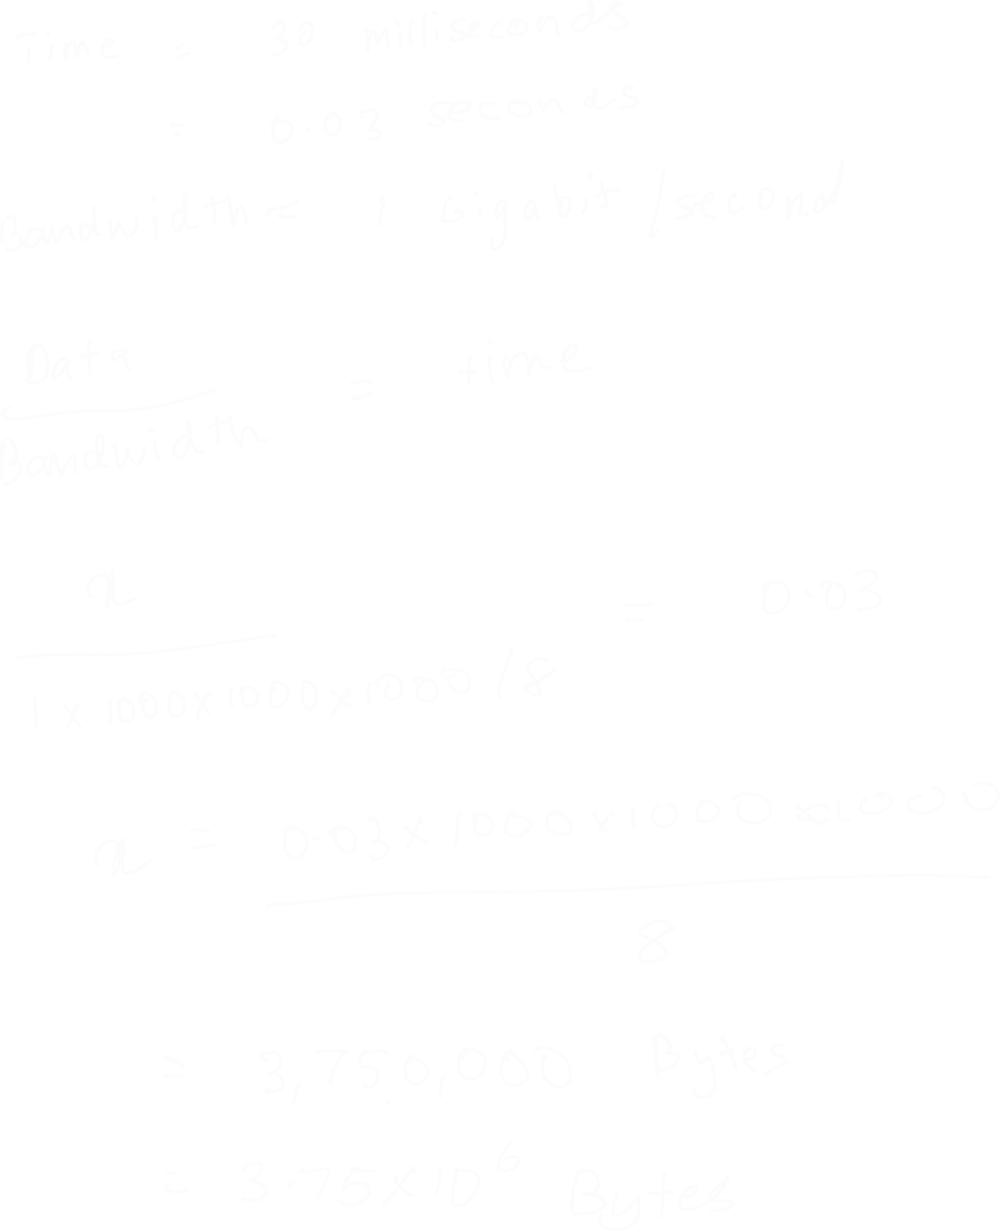 Time = 30 milliseconds
= 0.03 seconds
Bandwidth = 1 Gigabit / second
Data
= time
Bandwidth
x
= 0.03
1 x 1000 x 1000 x 1000 / 8
x = 0.03 x 1000 x 1000 x 1000
8
= 3,750,000 Bytes
= 3.75 x 10^6 Bytes